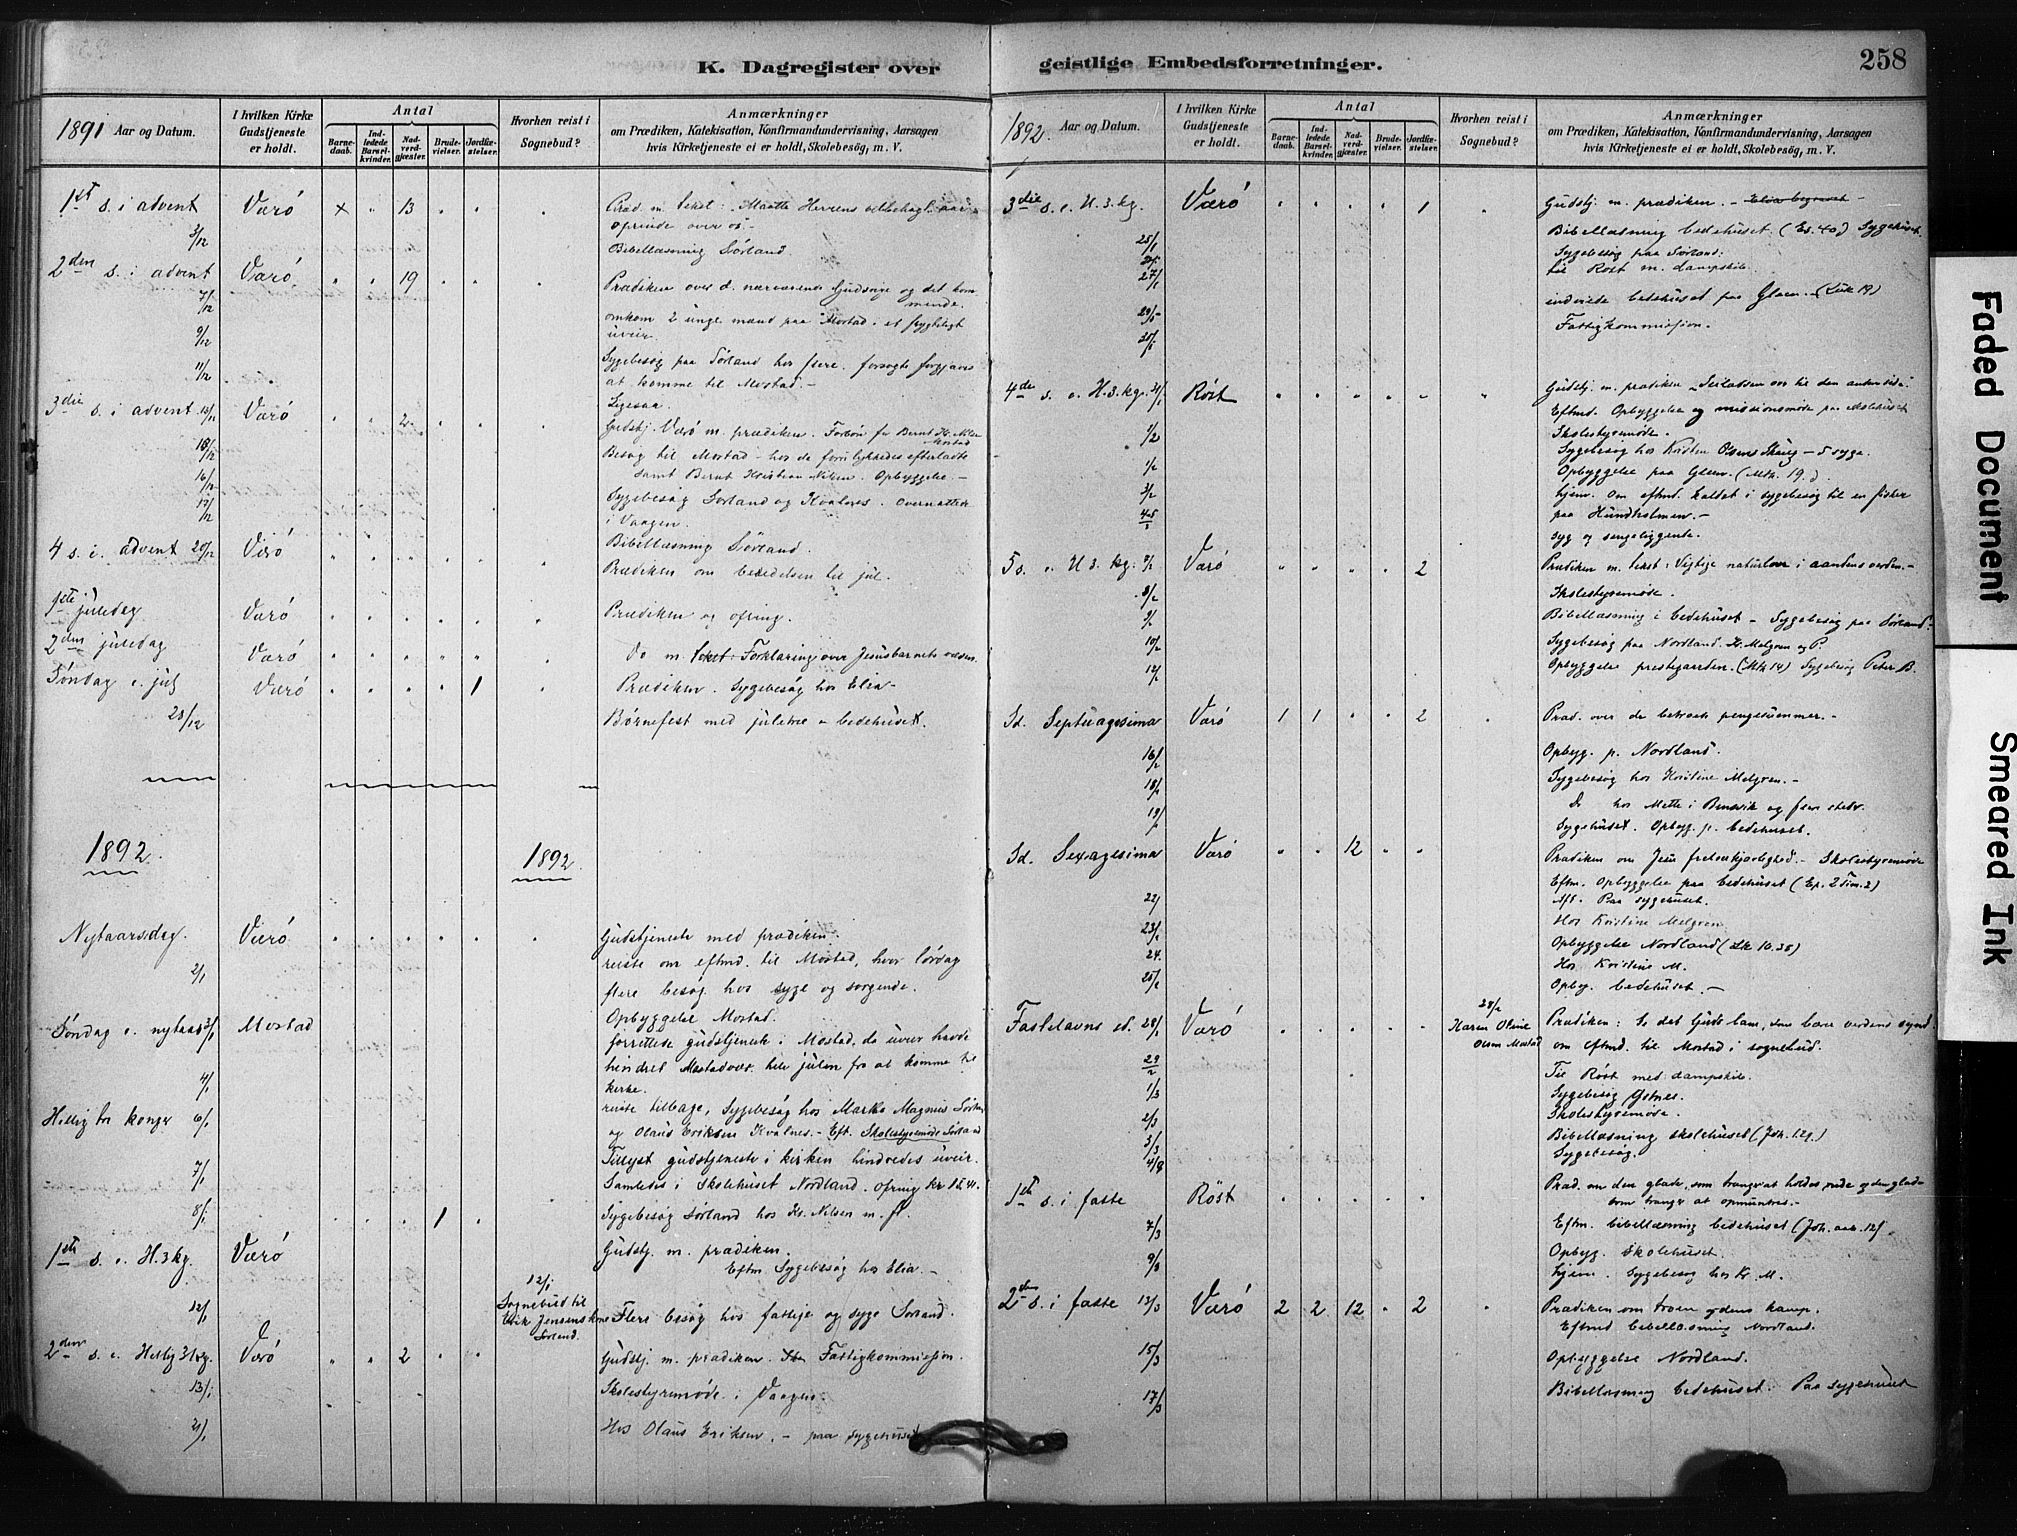 K. Dagregister over
1891 Aar og Datum.
I hvilken Kirke Gudstjeneste er holdt.
Antal
Barnedaab.
Indledede Barselkvinder.
Nadverdgjæster.
Brudevielser.
Jordfæstelser.
Hvorhen reist i Sognebud?
Anmærkninger
om Prædiken, Katekisation, Konfirmandundervisning, Aarsagen
hvis Kirketjeneste ei er holdt, Skolebesög, m. V.
1ste s. i advent Værö x " 13 " " " Præd. m. tekst: Maatte Herrens velbehagl. aar
oprinde over os. -
3/12 Bibellæsning Sörland.
2den s. i advent Værö " " 19 " " " Prædiken over d. nærværende Gudsrige og det kommende.
7/12 omkom 2 unge mænd paa Mostad i et frygteligt
uveir.
9/12
11/12 Sygebesög paa Sörland hos flere. forsøgte forgjæves
at komme til Mostad. -
3die s. i advent 13/12 Værö " " 2 " " " Gudstj. Værö m. prædiken. Forbön for Bernt
Mostad
Besög til Mostad - hos de forulykkedes efterladte
samt Bernt Kristian Nilsen. Opbyggelse. -
16/12 Sygebesög Sörland og Kvalnes. overnattede
i Vaagen.
17/12 Bibellæsning Sörland.
4 s. i. advent 20/12 Værö " " " " " " Prædiken om beredelsen til jul.
1ste juledag Værö " " " " " " Prædiken og ofring.
2den juledag Værö " " " " " " Do m. tekst: Forklaring over Jesusbarnets
Söndag e. jul Værö " " " " 1 " Prædiken. Sygebesög hos Elia -
28/12 Börnefest med juletræ - bedehuset.
1892. 1892
Nytaarsdag. Værö " " " " " " Gudstjeneste med prædiken.
2/1 reiste om eftmd. til Mostad, hvor lördag
flere besög hos syge og sorgende.
Opbyggelse Mostad.
Söndag e. nytaar 3/1 Mostad forrettede gudstjeneste i Mostad, da uveir havde
hindret Mostadvær. hele julen fra at komme til
kirke.
4/1 reiste tilbage, Sygebesög hos Marko Magnus
og Olaus Eriksen Kvalnes. - Eft. Skolestyremöde Sörland
Hellig tre konger 6/1 Tillyst gudstjeneste i kirken hindredes uveir.
7/1 Samledes i Skolehuset Nordland. ofring
8/1 Sygebesög Sörland hos Kr. Nilsen m. fl.
1ste s. e. H. 3 kg. Værö " " " 1 " Gudstj. m. prædiken.
Eftm. Sygebesög hos Elia. -
12/1 12/1 Sognebud til
Erik Jensens kone
Sörland. Flere besög hos fattige og syge Sörland.
2den s. e. Hellig 3 kg. Værö " " 2 " " Gudstj. m. prædiken. Fattigkommission.
Skolestyremöde i Vaagen.
21/1 Hos Olaus Eriksen. - paa sygehuset
geistlige Embedsforretninger.
258
1892. Aar og Datum.
I hvilken Kirke Gudstjeneste er holdt.
Antal
Barnedaab.
Indledede Barselkvinder.
Nadverdgjæster.
Brudevielser.
Jordfæstelser.
Hvorhen reist i Sognebud?
Anmærkninger
om Prædiken, Katekisation, Konfirmandundervisning, Aarsagen
hvis Kirketjeneste ei er holdt, Skolebesög, m. V.
3die s. e. H. 3. kg. Værö " " " " 1 " Gudstj. m. prædiken. -
25/1 Bibellæsning bedehuset (Es. 40) Sygehuset.
Sygebesög paa Sörland.
27/1 til Röst m. dampskib.
indviede bedehuset paa Glæen. (Luk 19)
Fattigkommission.
4de s. e. H. 3. kg. 31/1 Röst " " " " " " Gudstj. m. prædiken
Eftmd. Opbyggelse og missionsmöde paa skolehuset
1/2 Skolestyremöde.
1/2 Sygebesög hos Kristen Olsens - 5 syge.
Opbyggelse paa Glæen. (Mtk. 19.)
3/2 hjem. Om eftmd. kaldet i sygebesög til en fisker
paa Hundholmen. -
syg og sengeliggende.
5 s. e. H 3. kg. 7/2 Værö " " " " 2 Prædiken m. tekst: Vigtige naturlove i aandens verden. -
8/2 Skolestyremöde.
9/2 Bibellæsning i bedehuset - Sygebesög paa Sörland.
10/2 Sygebesög paa Nordland. K. Melgren og P.
12/2 Opbyggelse prestgaarden. (Mtk 14) Sygebesög Peter B.
Sd. Septuagesima Værö 1 1 " " 2 " Præd. over de betroede pengesummer. -
16/2 Opbyg. p. Nordland.
18/2 Sygebesög hos Kristine Melgren. -
Do hos Mette i og fem steder
19/2 Sygehuset. Opbyg. p. bedehuset.
Sd. Sexagesima Værö " " 12 " " Prædiken om Jesu frelserkjærlighed. - Skolestyremöde
Eftm. Opbyggelse paa bedehuset (Ep. 2 Tim. 2)
22/ Paa sygehuset.
23/2 Hos Kristine Melgren
24. Opbyggelse Nordland (Lk 10.38)
Hos Kristine M.
25/2 Opbyg. bedehuset. -
Fastelavns sd. 28/2 Værö " " " " " 28/2
Karen Oline
Olsen Mostad Prædiken: Se det Guds lam, som bærer verdens synd.
om eftmd. til Mostad i sognebud.
29/2 Til Röst med dampskib.
1/3 Sygebesög Ystnes.
2/3 Skolestyremöde.
3/3 Bibellæsning skolehuset (Joh. 12 g.)
4/3 Sygebesög.
1ste s. i faste Röst " " " " " " Præd. om den glade, som trænger at holdes nede og den glade
som trænger at opmuntres.
7/3 Eftm. bibellæsning bedehuset
Opbyg. Skolehuset.
9/3 hjem. Sygebesög hos Kr. M.
2den s. i faste 13/3 Værö 2 2 12 " 2 " Prædiken om troen og dens kamp.
Eftmd bibellæsning Nordland.
15/3 Opbyggelse Nordland.
17/3 Bibellæsning bedehuset. Paa sygehuset
Faded Document
Smeared Ink